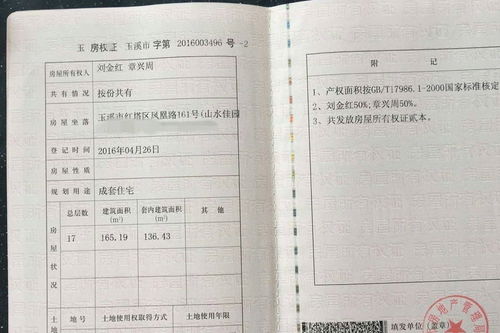 玉 房权证 玉溪市 字第 2016003496 号 -2
房屋所有权人 刘金红 章兴周
共有情况 按份共有
房屋坐落 玉溪市红塔区凤凰路161号(山水佳园
登记时间 2016年04月26日
房屋性质
规划用途 成套住宅
房屋状况
总层数 建筑面积 (m²) 套内建筑面积 (m²) 其他
17 165.19 136.43
土地号 土地使用权取得方式 土地使用年限
附记
1、产权面积按GB/T17986.1-2000国家标准核定
2、刘金红50%;章兴周50%。
3、共发放房屋所有权证贰本。
填发单位(盖章)
房地产管理